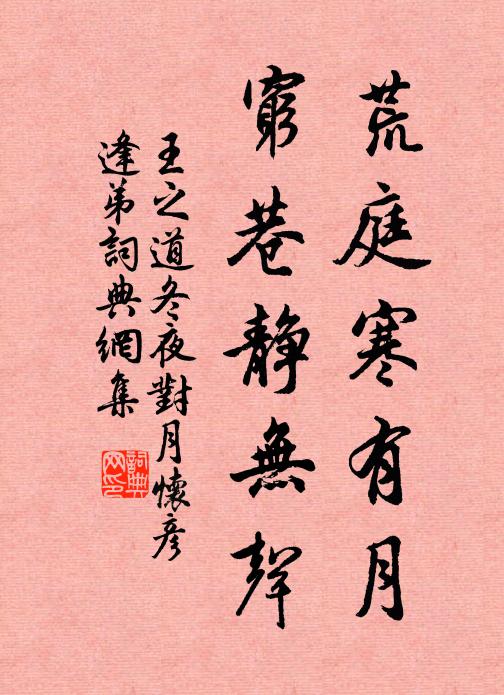 荒庭寒有月
窮巷静無聲
王之道冬夜對月懷彦
逢弟詞典網集
詞典网印